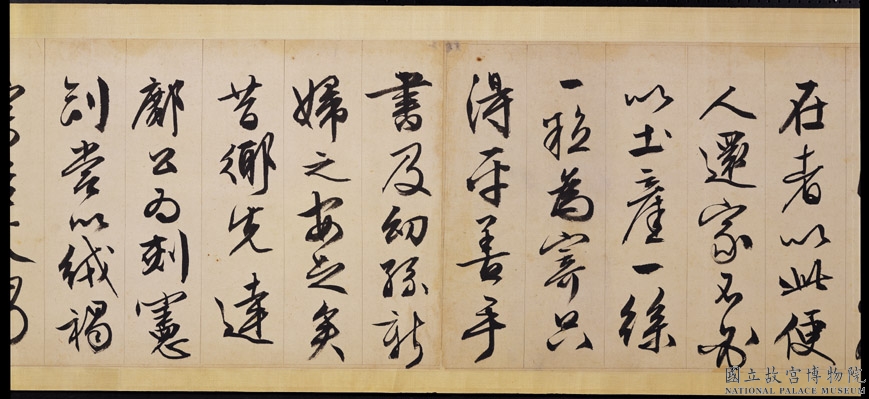 在者以此便
人還家不必
以土產一絲
一粒為寄只
得平善手
書及幼孫新
婦之安足矣
昔鄉先達
鄺公為刺憲
創嘗以絨褐
國立故宮博物院
NATIONAL PALACE MUSEUM